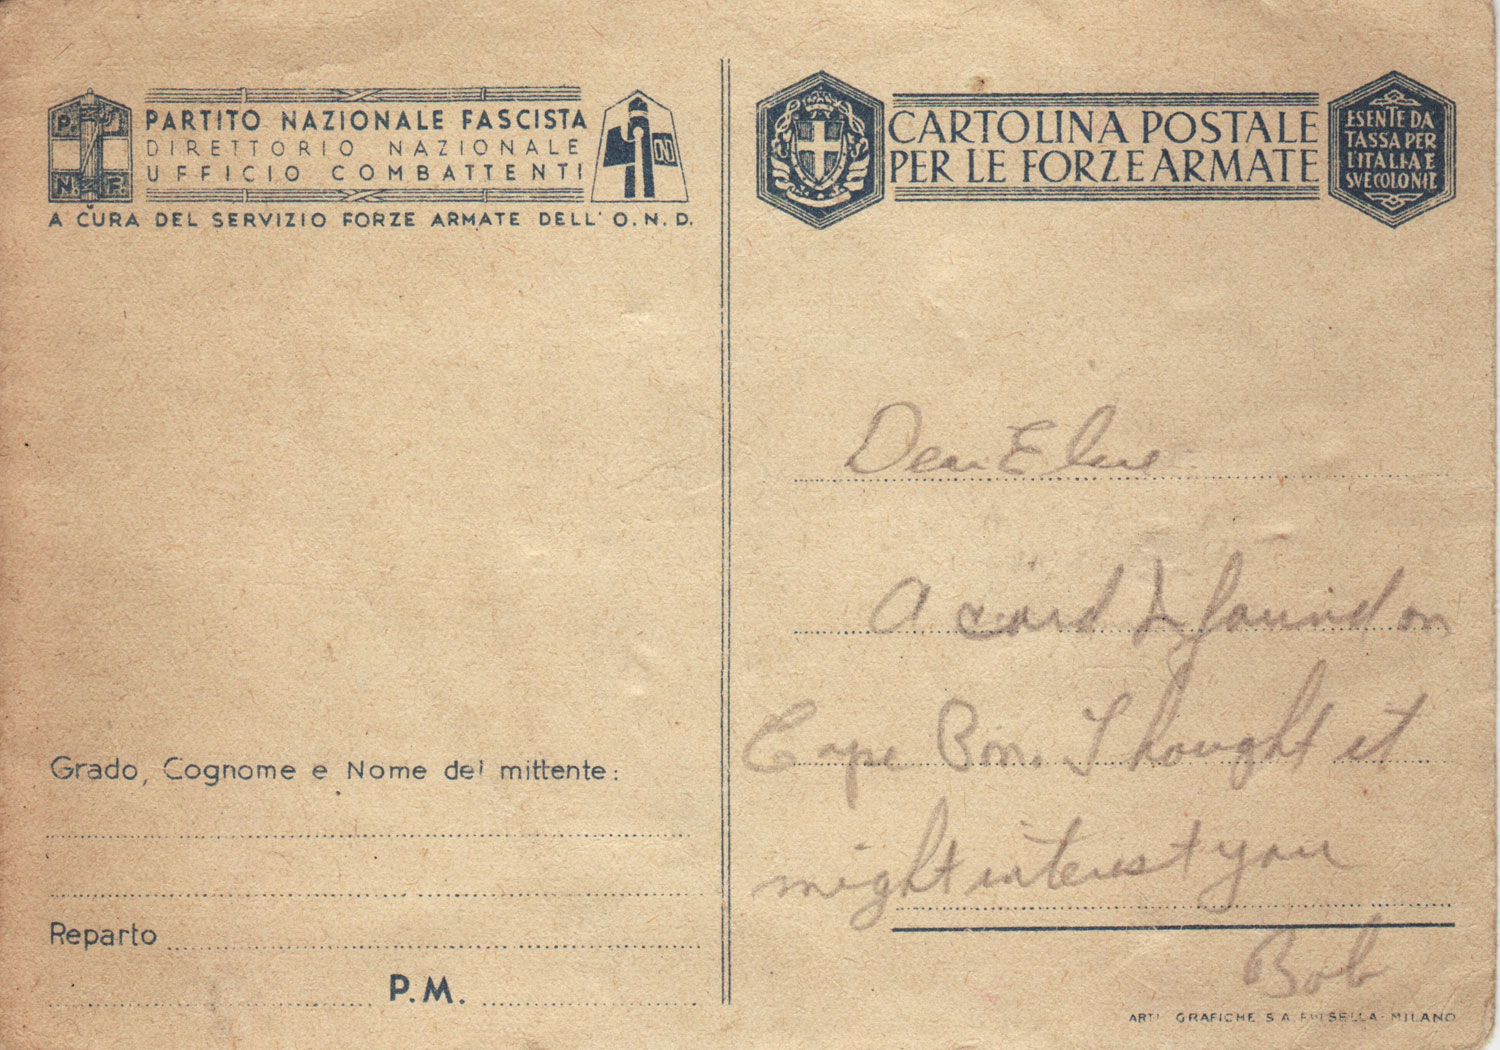 P.
N. F.
PARTITO NAZIONALE FASCISTA
DIRETTORIO NAZIONALE
UFFICIO COMBATTENTI
A CURA DEL SERVIZIO FORZE ARMATE DELL' O.N.D.
Grado, Cognome e Nome del mittente:
Reparto
P.M.
CARTOLINA POSTALE
PER LE FORZE ARMATE
ESENTE DA
TASSA PER
L'ITALIA E
SVE COLONIE
Dear
A card I found on
Cape Bon. Thought it
might interest you
Bob
ARTI GRAFICHE S A MILANO